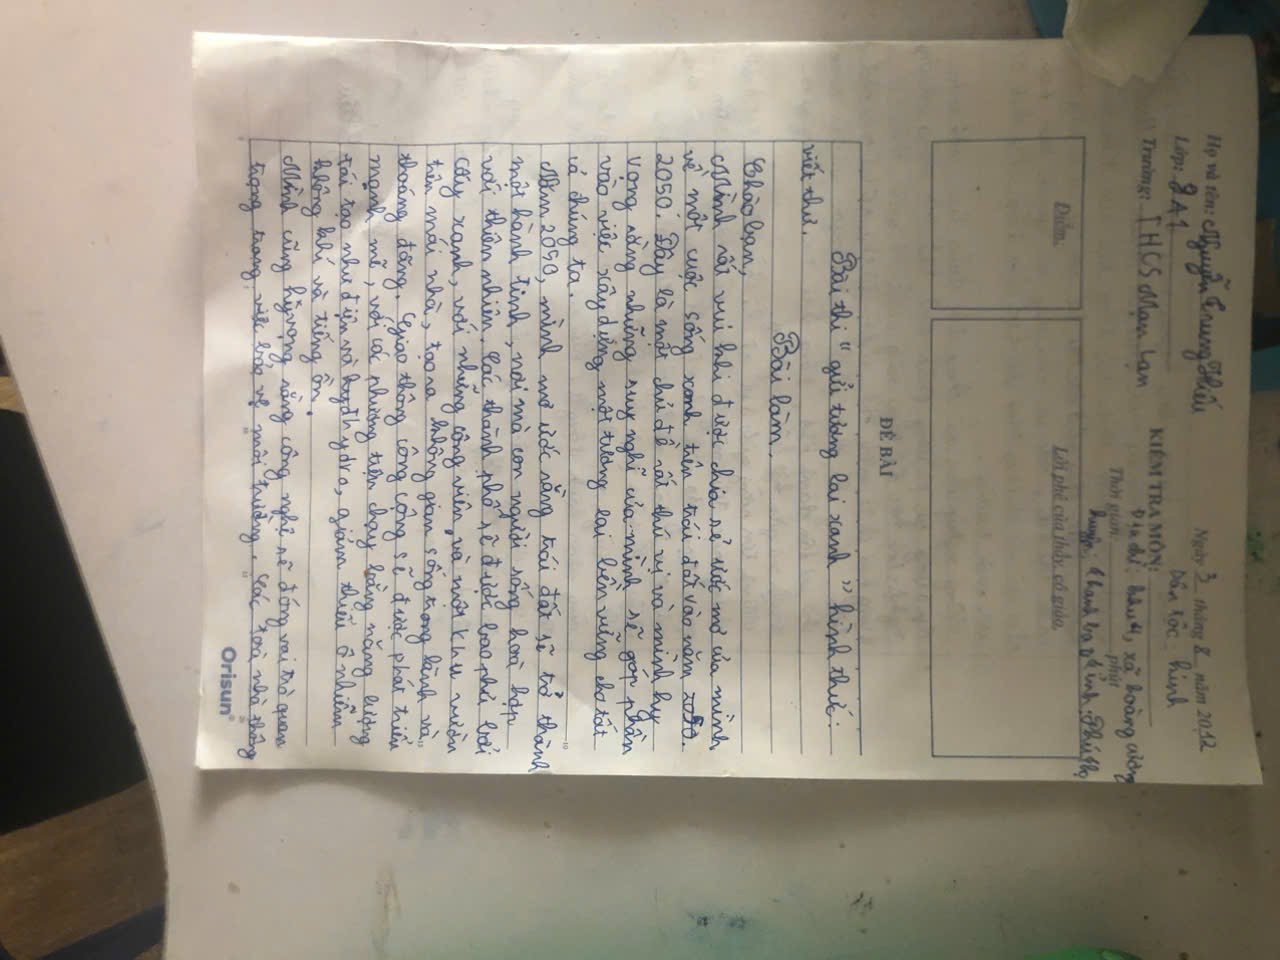 Họ và tên: Nguyễn Trung Hiếu
Ngày 3 tháng 8 năm 2012
Lớp: 9A1
Dân tộc kinh
Trường: THCS Mạn Lạn
KIỂM TRA MÔN:
Địa chỉ: khu 4, xã hoàng cương
Thời gian: phút
huyện thanh ba tỉnh Phú thọ
Điểm
Lời phê của thầy, cô giáo
ĐỀ BÀI
Bài thi " gửi tương lai xanh " hình thức:
viết thư.
Bài làm.
Chào bạn,
Mình rất vui khi được chia sẻ ước mơ của mình
về một cuộc sống xanh trên trái đất vào năm
2050. Đây là một chủ đề rất thú vị và mình hy
vọng rằng những suy nghĩ của mình sẽ góp phần
vào việc xây dựng một tương lai bền vững cho tất
cả chúng ta.
Năm 2050, mình mơ ước rằng trái đất sẽ trở thành
một hành tinh, nơi mà con người sống hoà hợp
với thiên nhiên. Các thành phố sẽ được bao phủ bởi
cây xanh, với những công viên và một khu vườn
trên mái nhà, tạo ra không gian sống trong lành và
thoáng đãng. Giao thông công cộng sẽ được phát triển
mạnh mẽ, với các phương tiện chạy bằng năng lượng
tái tạo như điện và hydro, giảm thiểu ô nhiễm
không khí và tiếng ồn.
Mình cũng hy vọng rằng công nghệ sẽ đóng vai trò quan
trọng trong việc bảo vệ môi trường. Các toà nhà thông
Orisun